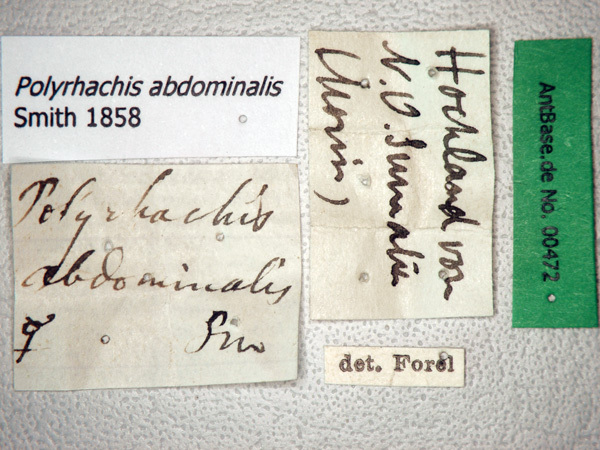 Polyrhachis abdominalis
Smith 1858
Polyrhachis
abdominalis
☿ Sm
Hochland von
N. O. Sumatra
det. Forel
AntBase.de No. 00472